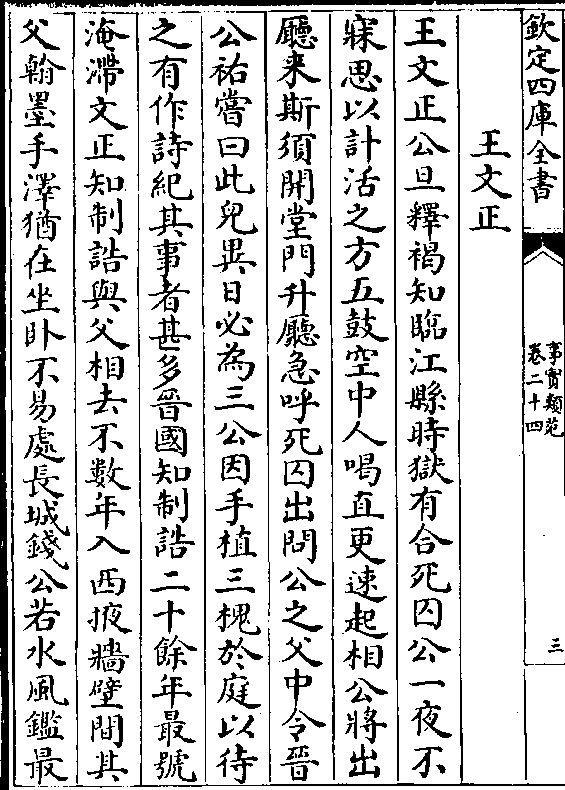 欽定四庫全書
事實類苑
卷二十四
三
王文正
王文正公旦釋褐知臨江縣時獄有合死囚公一夜不
寐思以計活之方五鼓空中人喝直更速起相公將出
廳来斯須開堂門升廳急呼死囚出問公之父中令晉
公祐嘗曰此兒異日必為三公因手植三槐於庭以待
之有作詩紀其事者甚多晉國知制誥二十餘年最號
淹滯文正知制誥與父相去不數年入西掖牆壁間其
父翰墨手澤猶在坐卧不易處長城錢公若水風鑑最